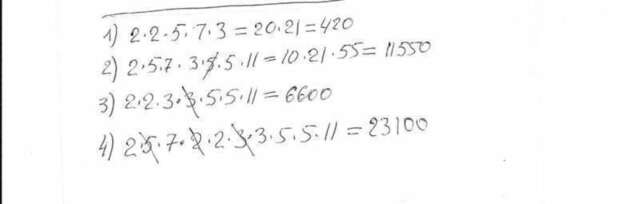 1) 2·2·5·7·3=20·21=420
2) 2·5·7·3·5·5·11=10·21·55=11550
3) 2·2·3·3·5·5·11=6600
4) 2·5·7·2·2·3·3·5·5·11=23100